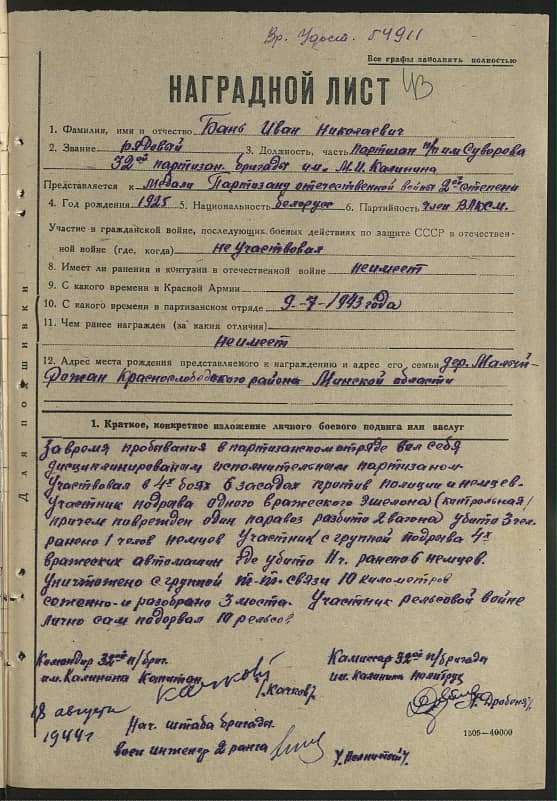 Вр. Удост. 54911
Все графы заполнять полностью
НАГРАДНОЙ ЛИСТ
1. Фамилия, имя и отчество Бань Иван Николаевич
2. Звание рядовой 3. Должность, часть партизан п/о им Суворова
32ой партизан. бригады им. М.И. Калинина
Представляется к медали Партизану отечественной войны 2ой степени
4. Год рождения 1925 5. Национальность белорус 6. Партийность член ВЛКСМ.
Участие в гражданской войне, последующих боевых действиях по защите СССР в отечествен-
ной войне (где, когда) не участвовал
8. Имеет ли ранения и контузии в отечественной войне неимеет
9. С какого времени в Красной Армии
10. С какого времени в партизанском отряде 9-7-1943 года
11. Чем ранее награжден (за какия отличия)
неимеет
12. Адрес места рождения представляемого к награждению и адрес его семьи дер. Малый-
Рожан Краснослободского района Минской области
Для подшивки
1. Краткое, конкретное изложение личного боевого подвига или заслуг
За время пребывания в партизанском отряде вел себя
дисциплинированым исполнительным партизаном
Участвовал в 4х боях 6 засадах против полиции и немцев.
Участник подрыва одного вражеского эшелона (контрольная/
причем поврежден один паравоз разбито 2 вагона убито 3 чел.
ранено 1 челов немцев Участник с группой подрыва 4х
вражеских автомашин где убито 11 ч. ранено 6 немцев.
Уничтожено с группой т-т. связи 10 километров
соженно-и разобрано 3 моста. Участник рельсовой войне
лично сам подорвал 10 рельсов
Командир 32ой п/бриг. Комиссар 32ой п/бригады
им. Калинина Капитан им. Калинина политрук
/Качков/ /Дробеня/
18 августа
1944 г Нач. штаба бригады.
воен инженер 2 ранга
1505—40000